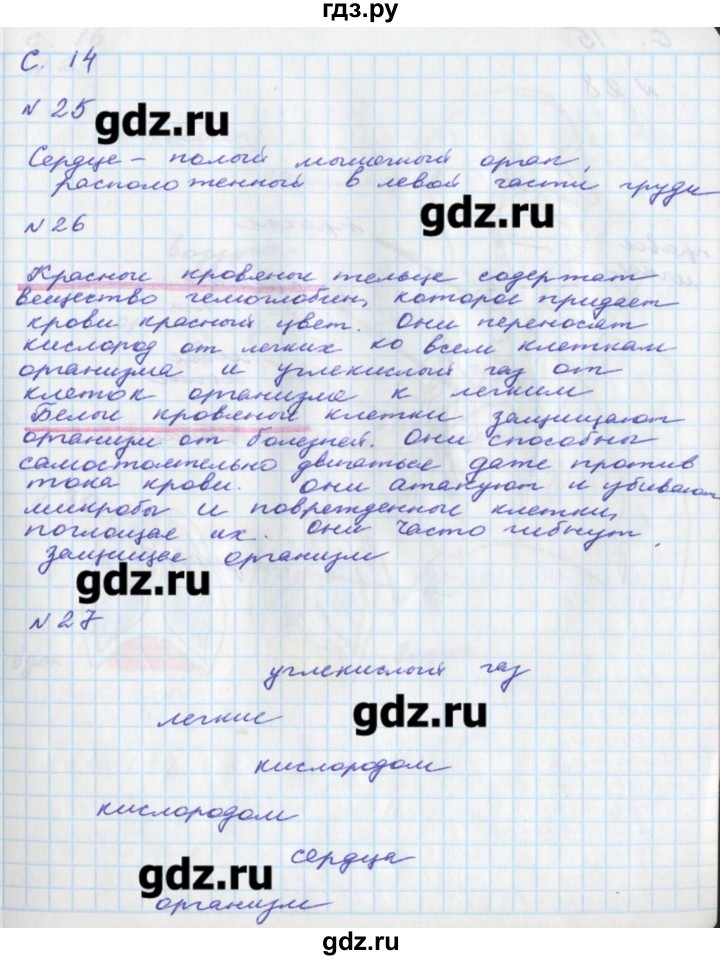 гдз.ру
С. 14
№ 25
gdz.ru
Сердце – полый мышечный орган,
расположенный в левой части груди
gdz.ru
№ 26
Красные кровяные тельца содержат
вещество гемоглобин, которое придает
крови красный цвет. Они переносят
кислород от легких ко всем клеткам
организма и углекислый газ от
клеток организма к легким
Белые кровяные клетки защищают
организм от болезней. Они способны
самостоятельно двигаться даже против
тока крови. Они атакуют и убивают
микробы и поврежденные клетки,
поглощая их. Они часто гибнут,
защищая организм
gdz.ru
№ 27
углекислый газ
легкие
gdz.ru
кислородом
кислородом
сердца
gdz.ru
организм
gdz.ru